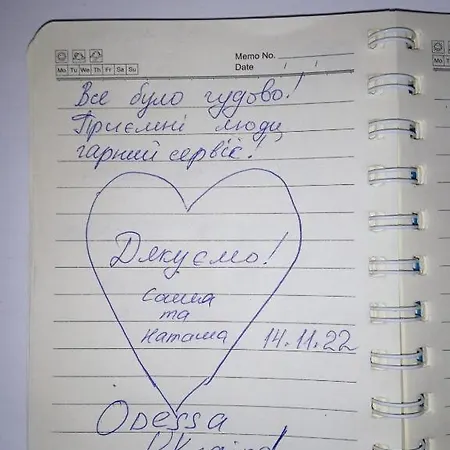 Memo No.
Date
Mo Tu We Th Fr Sa Su
Все було чудово!
Приємні люди,
гарний сервіс!
Дякуємо!
Саша
та
Наташа
14.11.22
Odessa
Ukraine!